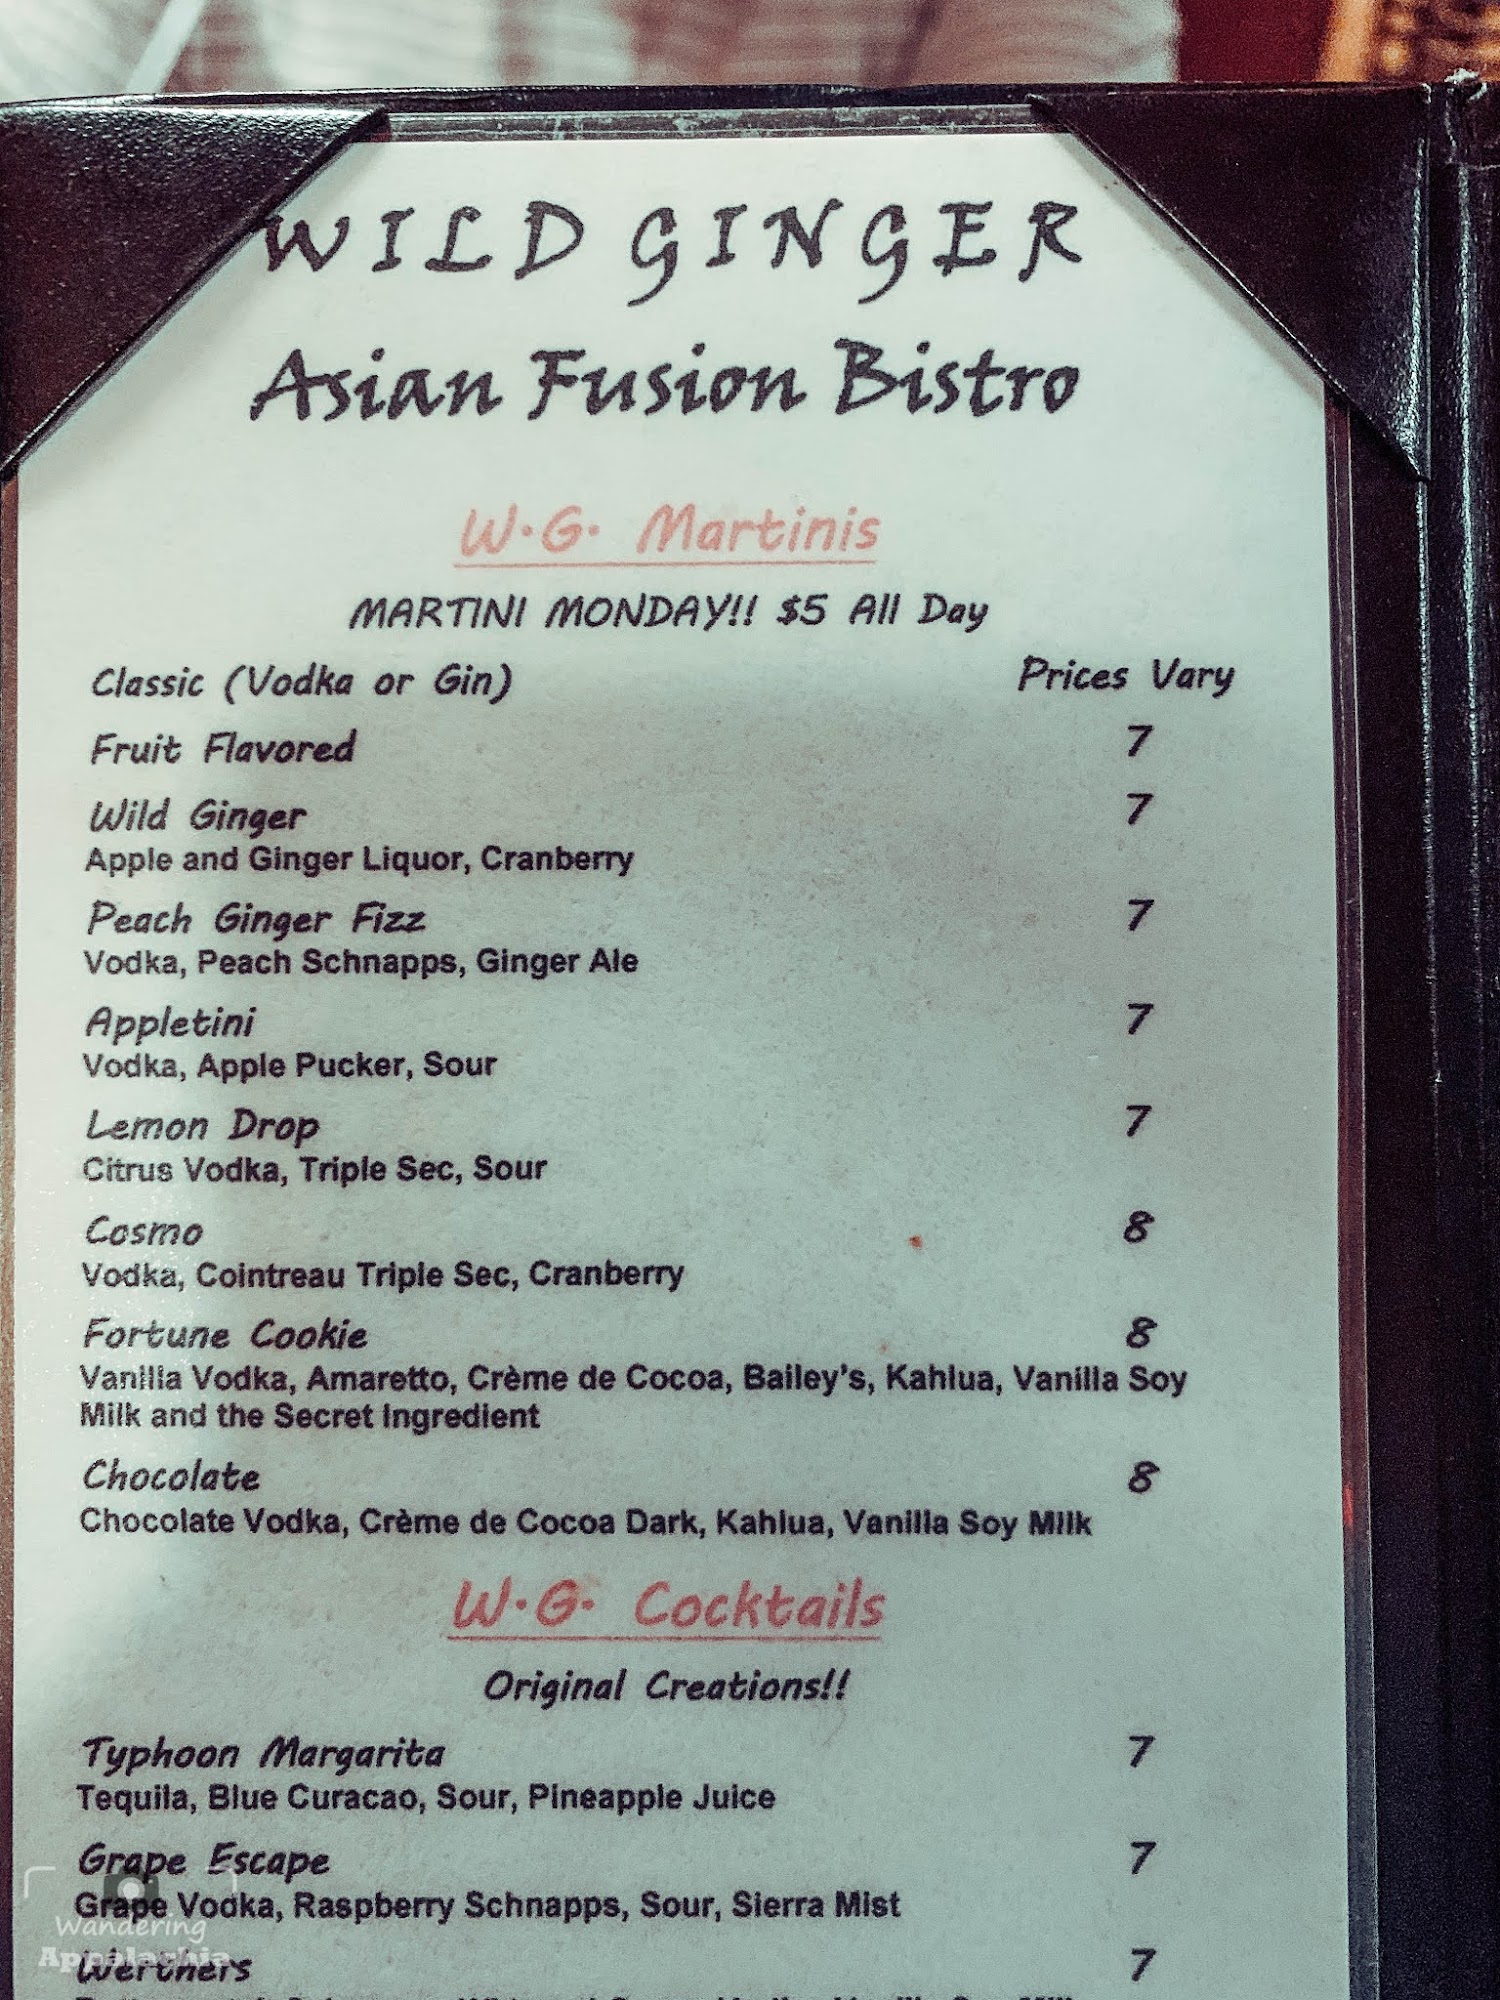 WILD GINGER
Asian Fusion Bistro
W.G. Martinis
MARTINI MONDAY!! $5 All Day
Classic (Vodka or Gin) Prices Vary
Fruit Flavored 7
Wild Ginger 7
Apple and Ginger Liquor, Cranberry
Peach Ginger Fizz 7
Vodka, Peach Schnapps, Ginger Ale
Appletini 7
Vodka, Apple Pucker, Sour
Lemon Drop 7
Citrus Vodka, Triple Sec, Sour
Cosmo 8
Vodka, Cointreau Triple Sec, Cranberry
Fortune Cookie 8
Vanilla Vodka, Amaretto, Crème de Cocoa, Bailey's, Kahlua, Vanilla Soy
Milk and the Secret Ingredient
Chocolate 8
Chocolate Vodka, Crème de Cocoa Dark, Kahlua, Vanilla Soy Milk
W.G. Cocktails
Original Creations!!
Typhoon Margarita 7
Tequila, Blue Curacao, Sour, Pineapple Juice
Grape Escape 7
Grape Vodka, Raspberry Schnapps, Sour, Sierra Mist
Werthers 7
Wandering
Appalachia